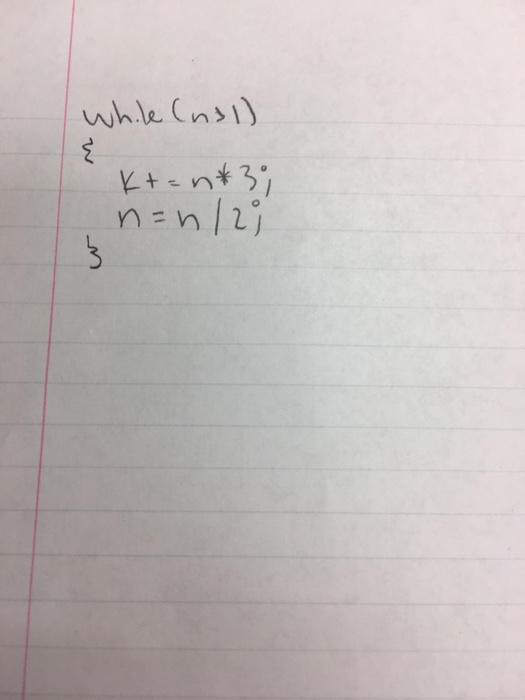 while(n>1)
{
k+=n*3;
n=n/2;
}